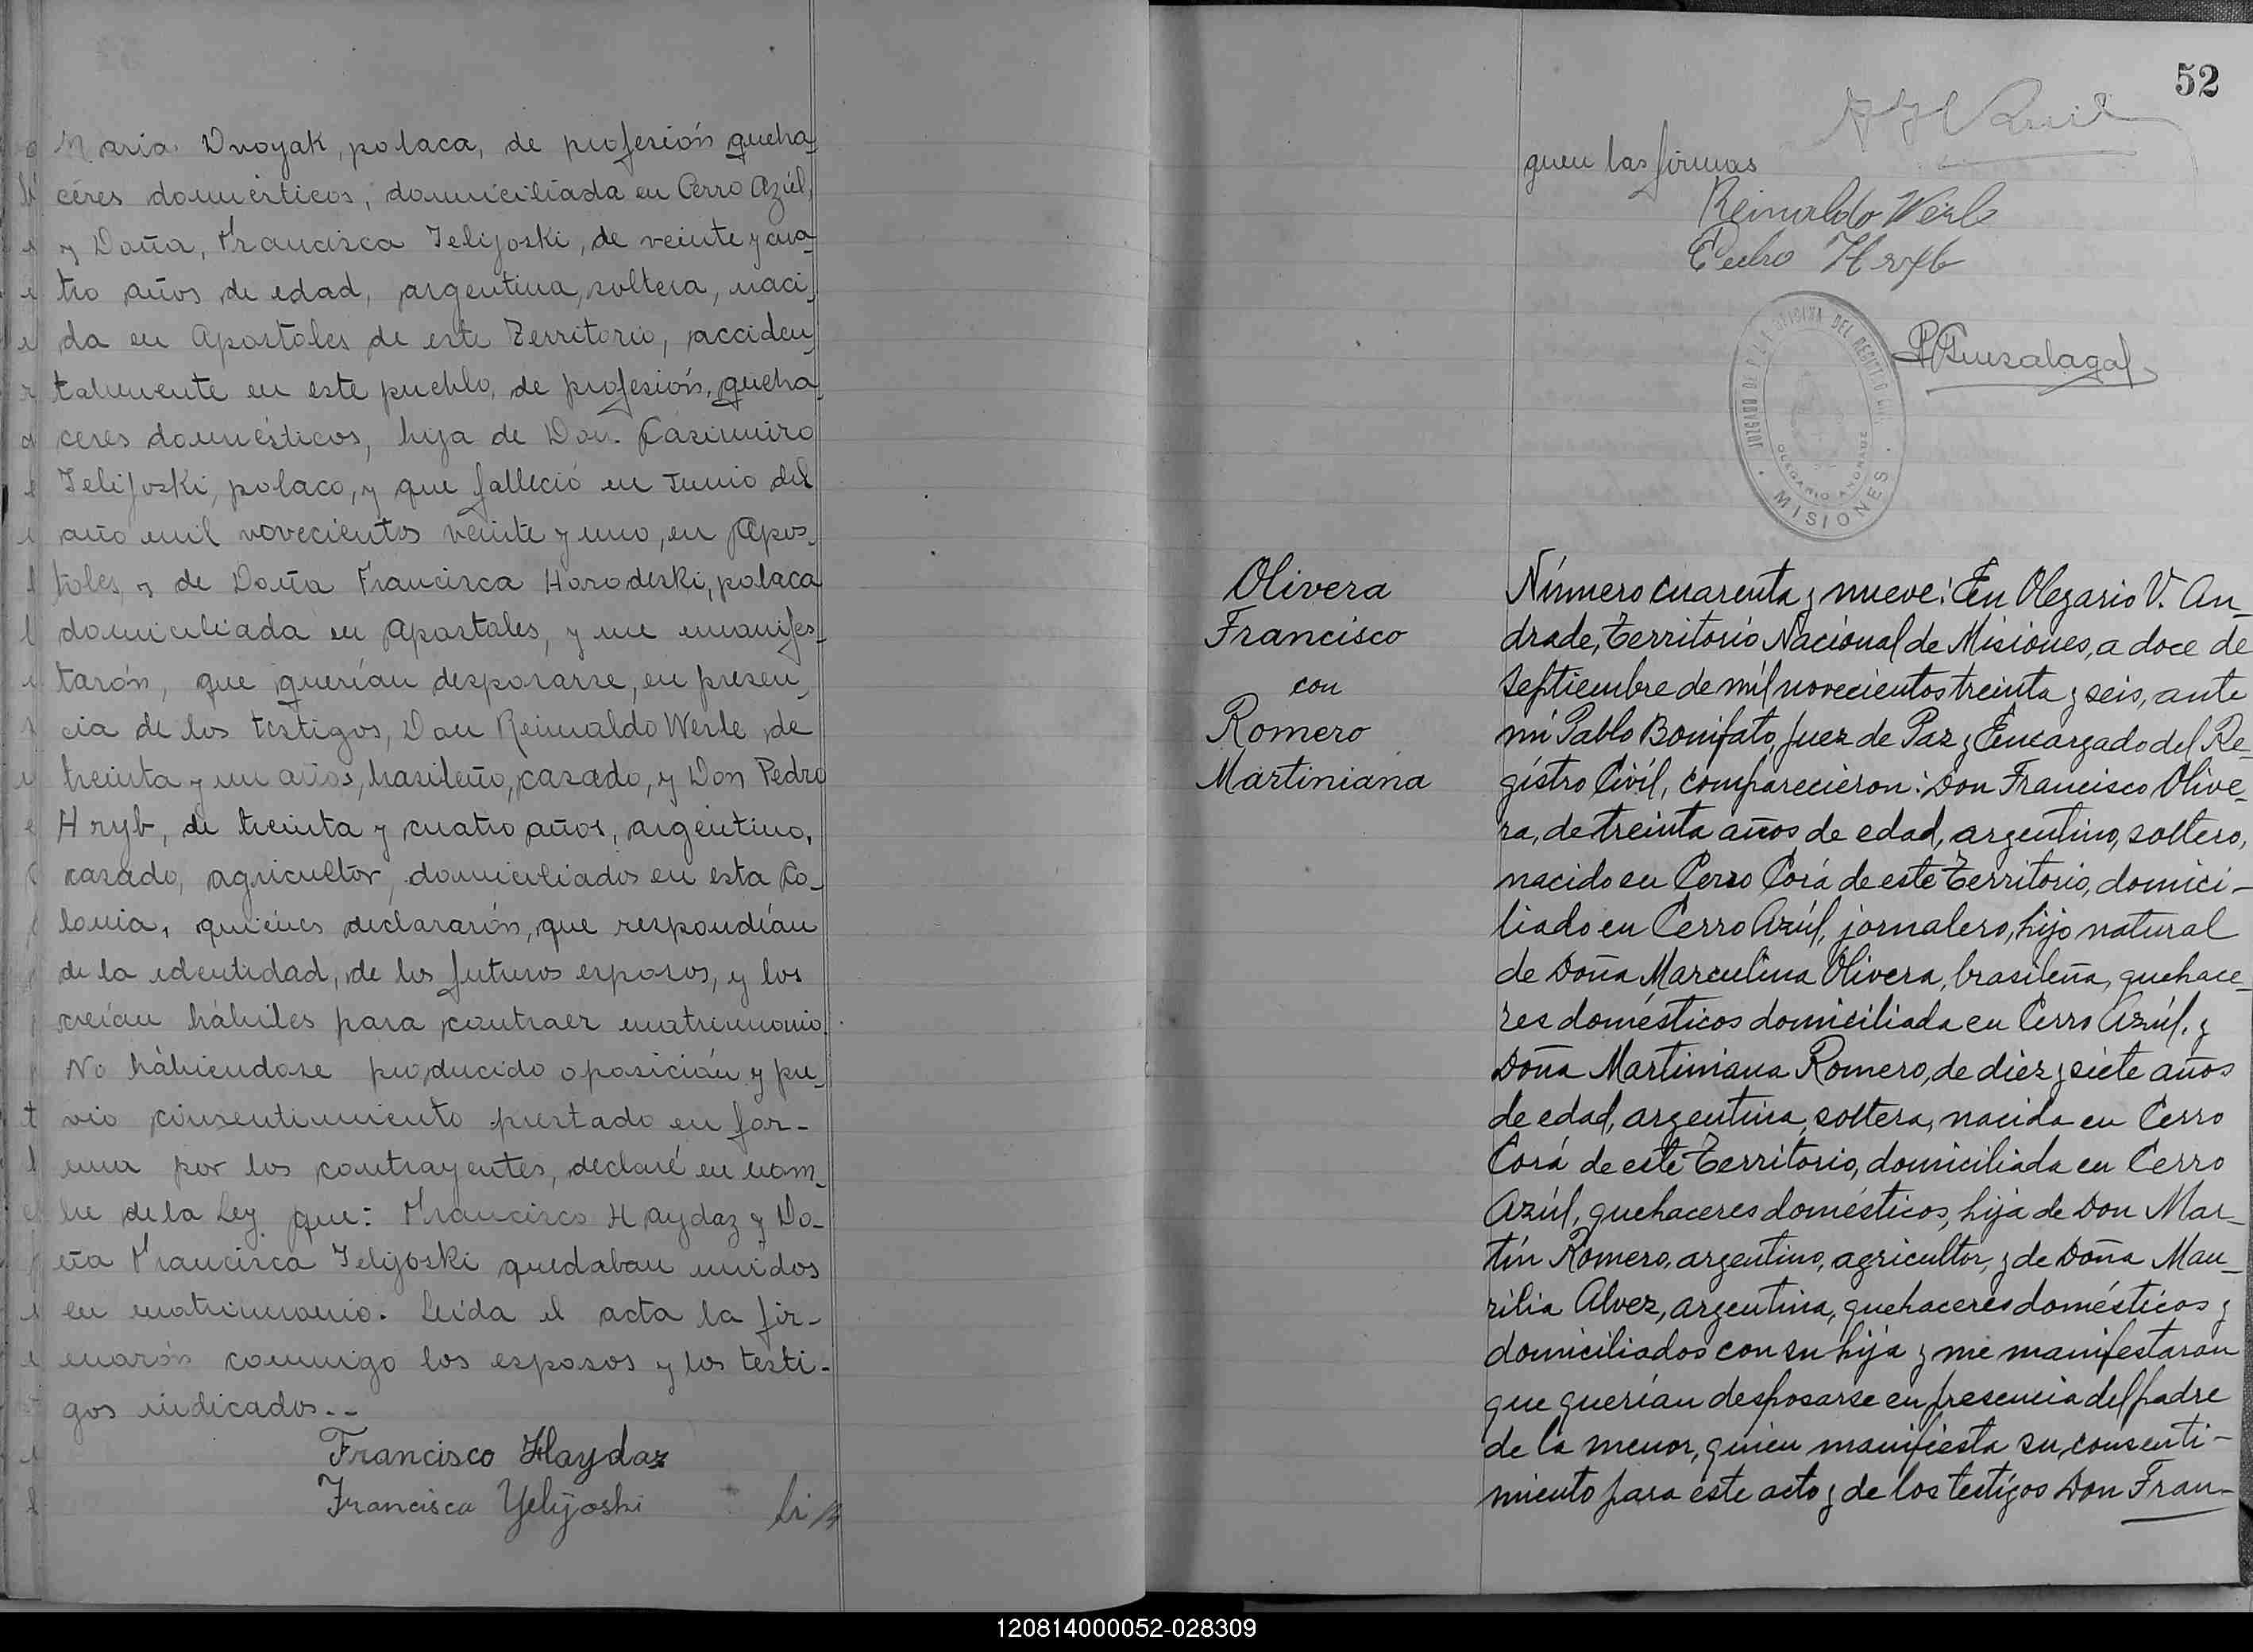 Maria Dvoyak, polaca, de profesión queha
céres domésticos, domiciliada en Cerro Azúl,
y Doña, Francisca Telijoski, de veinte y cua
tro años de edad, argentina, soltera, naci
da en Apostoles de este Territorio, acciden
talmente en este pueblo, de profesión, queha
ceres domésticos, hija de Don. Casimiro
Telijoski, polaco, y que falleció en Junio del
año mil novecientos veinte y uno, en Apos
toles, y de Doña Francisca Horodeski, polaca
domiciliada en Apostoles, y me manifes
tarón, que querían desposarse, en presen
cia de los testigos, Don Reinaldo Werle de
treinta y un años, brasileño, casado, y Don Pedro
Hryb, de treinta y cuatro años, argentino,
casado, agricultor, domiciliados en esta Co-
lonia, quiénes declararón, que respondían
de la identidad, de los futuros esposos, y los
creían hábiles para contraer matrimonio.
No habiendose producido oposición y pre
vio consentimiento prestado en for-
ma por los contrayentes, declaré en nom
bre de la Ley que: Francisco Haydaz y Do-
ña Francisca Telijoski quedaban unidos
en matrimonio. Leída el acta la fir-
marón conmigo los esposos y los testi-
gos indicados.--
Francisco Haydaz
Francisca Yelijoski
52
guen las firmas
Reinaldo Werle
Pedro Hryb
JUZGADO DE PAZ OFICINA DEL REGISTRO CIVIL
OLEGARIO ANDRADE
MISIONES
Olivera
Francisco
con
Romero
Martiniana
Número cuarenta y nueve: En Olegario V. An
drade, Territorio Nacional de Misiones, a doce de
septiembre de mil novecientos treinta y seis, ante
mi Pablo Bonifato, Juez de Paz y Encargado del Re
gistro Civil, comparecieron: Don Francisco Olive
ra, de treinta años de edad, argentino, soltero,
nacido en Cerro Corá de este Territorio, domici-
liado en Cerro Azúl, jornalero, hijo natural
de Doña Marculina Olivera, brasileña, quehace
res domésticos domiciliada en Cerro Azúl, y
Doña Martiniana Romero, de diez y siete años
de edad, argentina, soltera, nacida en Cerro
Corá de este Territorio, domiciliada en Cerro
Azúl, quehaceres domésticos, hija de Don Mar
tín Romero, argentino, agricultor, y de Doña Mau
rilia Alvez, argentina, quehaceres domésticos y
domiciliados con su hija y me manifestaron
que querían desposarse en presencia del padre
de la menor, quien manifiesta su consenti-
miento para este acto y de los testigos Don Fran-
120814000052-028309